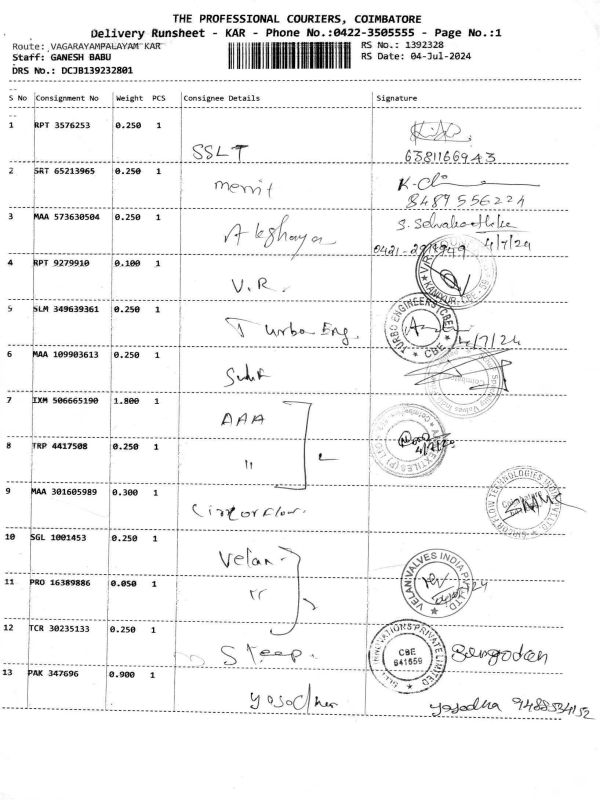 THE PROFESSIONAL COURIERS, COIMBATORE
Delivery Runsheet - KAR - Phone No.:0422-3505555 - Page No.:1
Route: VAGARAYAMPALAYAM KAR RS No.: 1392328
Staff: GANESH BABU RS Date: 04-Jul-2024
DRS No.: DCJB139232801
S No Consignment No Weight PCS Consignee Details Signature
1 RPT 3576253 0.250 1
SSLT 6381166943
2 SRT 65213965 0.250 1
merrit 8489556224
3 MAA 573630504 0.250 1
Akshaya 4/7/24
4 RPT 9279910 0.100 1
V.R.
5 SLM 349639361 0.250 1
Turbo Eng. TURBO ENGINEERS (CBE) CBE 4/7/24
6 MAA 109903613 0.250 1
7 IXM 506665190 1.800 1
AAA
8 TRP 4417508 0.250 1
"
9 MAA 301605989 0.300 1
10 SGL 1001453 0.250 1
Velan VELAN VALVES INDIA PVT LTD.
11 PRO 16389886 0.050 1
"
12 TCR 30235133 0.250 1
Steep. INNOVATIONS PRIVATE LIMITED CBE 641659
13 PAK 347696 0.900 1
yasodha 9488534152